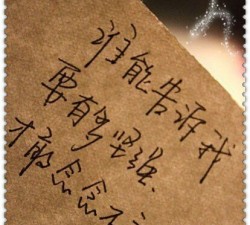 谁能告诉我
要有多坚强
才敢念念不